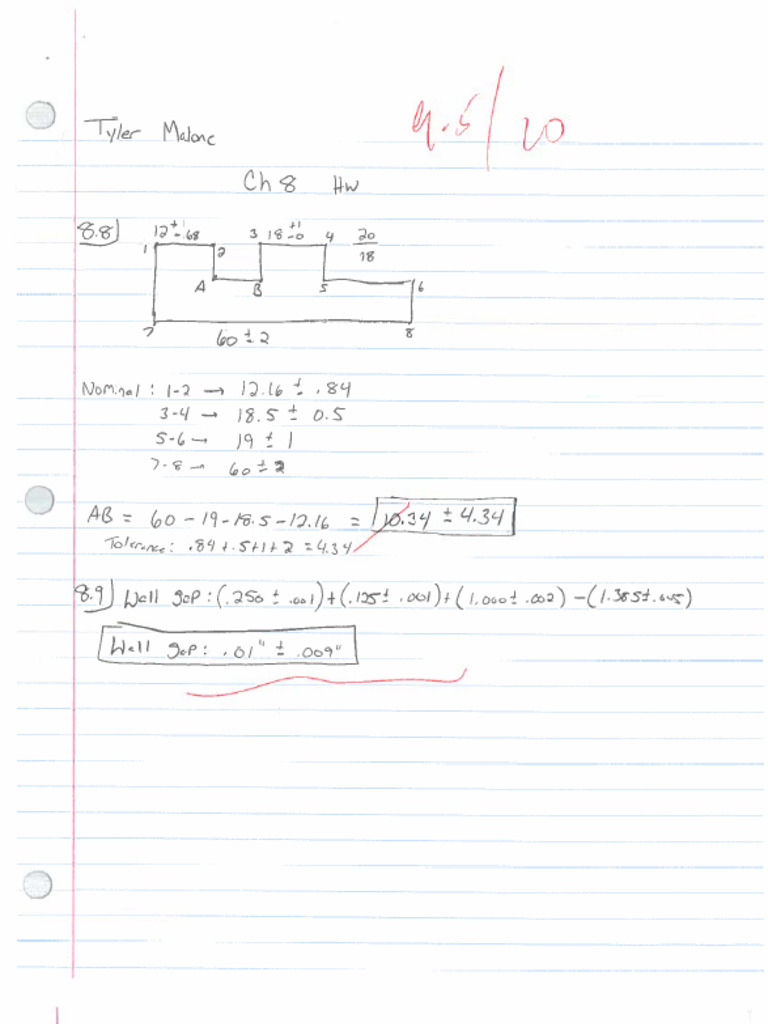 Tyler Malone
9.5/10
Ch 8 HW
8.8)
12 ± .68
3 18 +1 -0 4
20
18
1
2
A
B
5
6
7
8
60 ± 2
Nominal : 1-2 → 12.16 ± .84
3-4 → 18.5 ± 0.5
5-6 → 19 ± 1
7-8 → 60 ± 2
AB = 60 - 19 - 18.5 - 12.16 = 10.34 ± 4.34
Tolerance: .84 + .5 + 1 + 2 = 4.34
8.9) Wall gap : (.250 ± .001) + (.125 ± .001) + (1.000 ± .002) - (1.385 ± .005)
Wall gap: .01" ± .009"